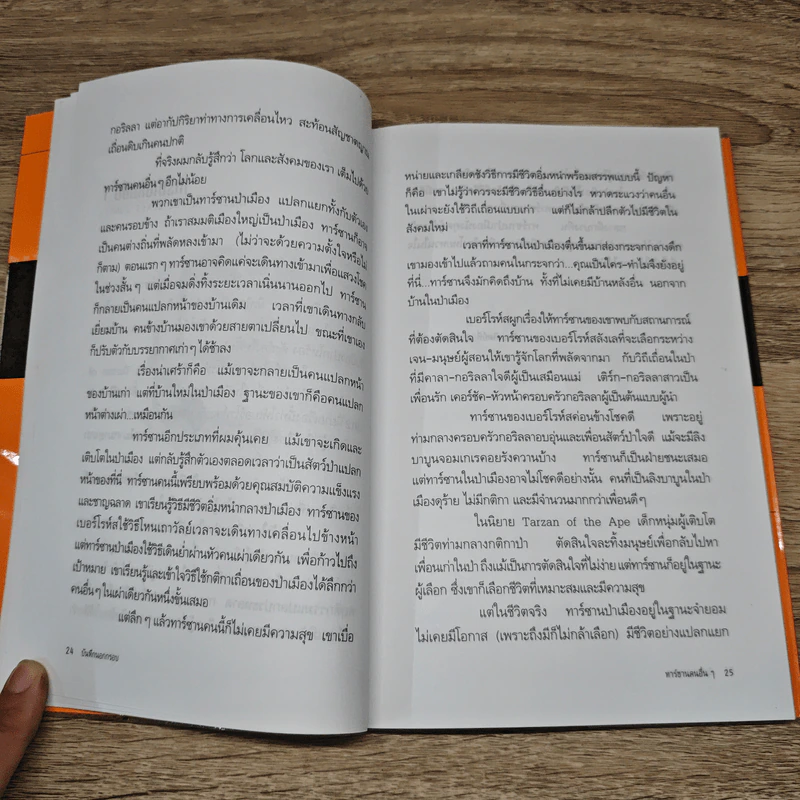 กอริลลา แต่อากัปกิริยาท่าทางการเคลื่อนไหว สะท้อนสัญชาตญาณ
เถื่อนดิบเกินคนปกติ
ที่จริงผมกลับรู้สึกว่า โลกและสังคมของเรา เต็มไปด้วย
ทาร์ซานคนอื่นๆ อีกไม่น้อย
พวกเขาเป็นทาร์ซานป่าเมือง แปลกแยกทั้งกับตัวเอง
และคนรอบข้าง ถ้าเราสมมติเมืองใหญ่เป็นป่าเมือง ทาร์ซานก็อาจ
เป็นคนต่างถิ่นที่พลัดหลงเข้ามา (ไม่ว่าจะด้วยความตั้งใจหรือไม่
ก็ตาม) ตอนแรกๆ ทาร์ซานอาจคิดแค่จะเดินทางเข้ามาเพื่อแสวงโชค
ในช่วงสั้นๆ แต่เมื่อจมดิ่งทิ้งระยะเวลาเนิ่นนานออกไป ทาร์ซาน
ก็กลายเป็นคนแปลกหน้าของบ้านเดิม เวลาที่เขาเดินทางกลับ
เยี่ยมบ้าน คนข้างบ้านมองเขาด้วยสายตาเปลี่ยนไป ขณะที่เขาเอง
ก็ปรับตัวกับบรรยากาศเก่าๆ ได้ช้าลง
เรื่องน่าเศร้าก็คือ แม้เขาจะกลายเป็นคนแปลกหน้า
ของบ้านเก่า แต่ที่บ้านใหม่ในป่าเมือง ฐานะของเขาก็คือคนแปลก
หน้าต่างเผ่า...เหมือนกัน
ทาร์ซานอีกประเภทที่ผมคุ้นเคย แม้เขาจะเกิดและ
เติบโตในป่าเมือง แต่กลับรู้สึกตัวเองตลอดเวลาว่าเป็นสัตว์ป่าแปลก
หน้าของที่นี่ ทาร์ซานคนนี้เพรียบพร้อมด้วยคุณสมบัติความแข็งแรง
และชาญฉลาด เขาเรียนรู้วิธีมีชีวิตอิ่มหนำกลางป่าเมือง ทาร์ซานของ
เบอร์โรห์สใช้วิธีโหนเถาวัลย์เวลาจะเดินทางเคลื่อนไปข้างหน้า
แต่ทาร์ซานป่าเมืองใช้วิธีเดินย่ำผ่านหัวคนเผ่าเดียวกัน เพื่อก้าวไปถึง
เป้าหมาย เขาเรียนรู้และเข้าใจวิธีใช้กติกาเถื่อนของป่าเมืองได้ลึกกว่า
คนอื่นๆ ในเผ่าเดียวกันหนึ่งขั้นเสมอ
แต่ลึกๆ แล้วทาร์ซานคนนี้ก็ไม่เคยมีความสุข เขาเบื่อ
24 บันทึกนอกกรอบ
หน่ายและเกลียดชังวิธีการมีชีวิตอิ่มหนำพร้อมสรรพแบบนี้ ปัญหา
ก็คือ เขาไม่รู้ว่าควรจะมีชีวิตวิธีอื่นอย่างไร หวาดระแวงว่าคนอื่น
ในเผ่าจะยังใช้วิถีเถื่อนแบบเก่า แต่ก็ไม่กล้าปลีกตัวไปมีชีวิตใน
สังคมใหม่
เวลาที่ทาร์ซานในป่าเมืองตื่นขึ้นมาส่องกระจกกลางดึก
เขามองเข้าไปแล้วถามคนในกระจกว่า...คุณเป็นใคร-ทำไมจึงยังอยู่
ที่นี่...ทาร์ซานจึงมักคิดถึงบ้าน ทั้งที่ไม่เคยมีบ้านหลังอื่น นอกจาก
บ้านในป่าเมือง
เบอร์โรห์สผูกเรื่องให้ทาร์ซานของเขาพบกับสถานการณ์
ที่ต้องตัดสินใจ ทาร์ซานของเบอร์โรห์สลังเลที่จะเลือกระหว่าง
เจน-มนุษย์ผู้สอนให้เขารู้จักโลกที่พลัดจากมา กับวิถีเถื่อนในป่า
ที่มีคาลา-กอริลลาใจดีผู้เป็นเสมือนแม่ เติร์ก-กอริลลาสาวเป็น
เพื่อนรัก เคอร์ชัค-หัวหน้าครอบครัวกอริลลาผู้เป็นต้นแบบผู้นำ
ทาร์ซานของเบอร์โรห์สค่อนข้างโชคดี เพราะอยู่
ท่ามกลางครอบครัวกอริลลาอบอุ่นและเพื่อนสัตว์ป่าใจดี แม้จะมีลิง
บาบูนจอมเกเรคอยรังควานบ้าง ทาร์ซานก็เป็นฝ่ายชนะเสมอ
แต่ทาร์ซานในป่าเมืองอาจไม่โชคดีอย่างนั้น คนที่เป็นลิงบาบูนในป่า
เมืองดุร้าย ไม่มีกติกา และมีจำนวนมากกว่าเพื่อนดีๆ
ในนิยาย Tarzan of the Ape เด็กหนุ่มผู้เติบโต
มีชีวิตท่ามกลางกติกาป่า ตัดสินใจละทิ้งมนุษย์เพื่อกลับไปหา
เพื่อนเก่าในป่า ถึงแม้เป็นการตัดสินใจที่ไม่ง่าย แต่ทาร์ซานก็อยู่ในฐานะ
ผู้เลือก ซึ่งเขาก็เลือกชีวิตที่เหมาะสมและมีความสุข
แต่ในชีวิตจริง ทาร์ซานป่าเมืองอยู่ในฐานะจำยอม
ไม่เคยมีโอกาส (เพราะถึงมีก็ไม่กล้าเลือก) มีชีวิตอย่างแปลกแยก
ทาร์ซานคนอื่นๆ 25